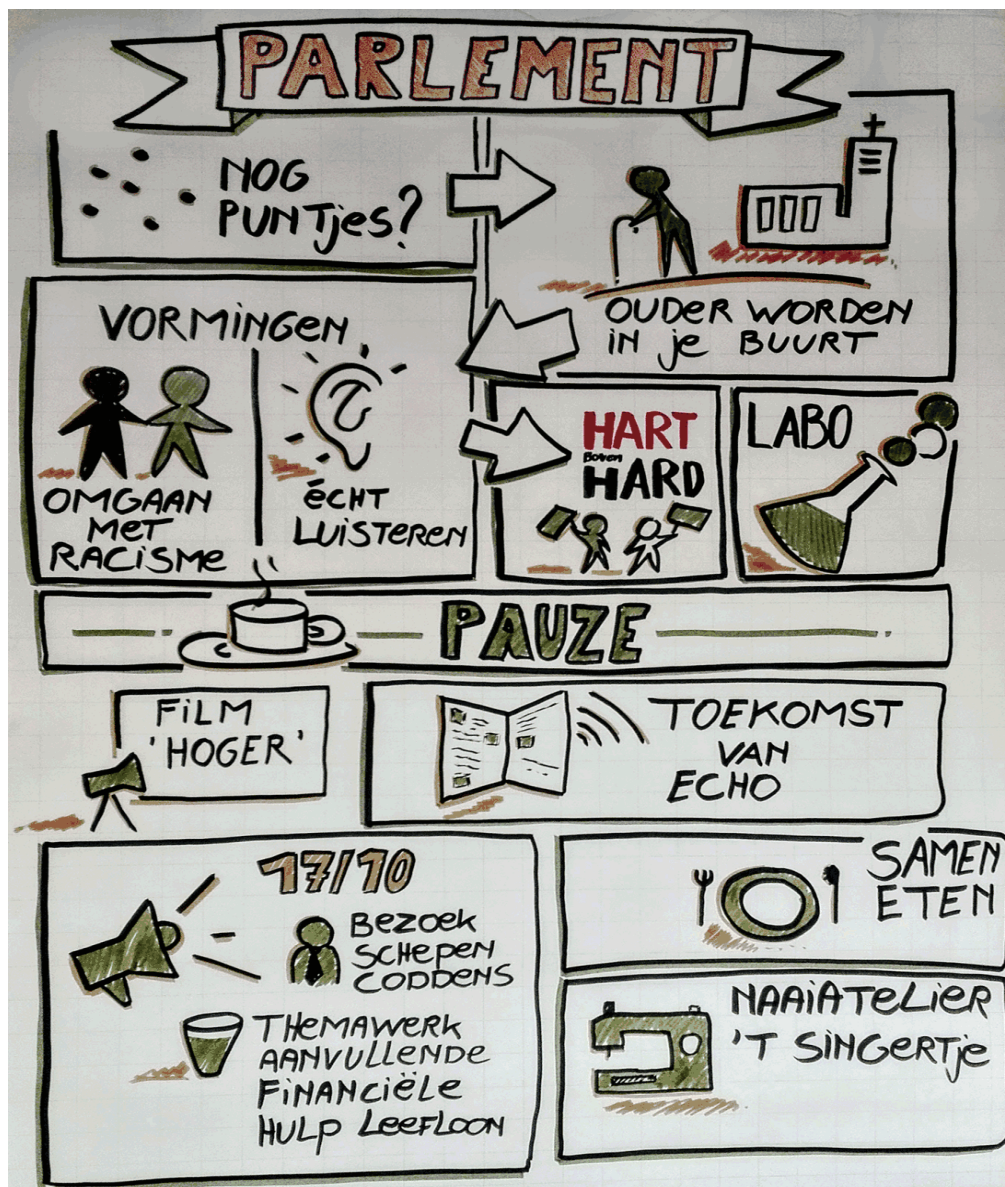 PARLEMENT
NOG
PUNTjes?
OUDER WORDEN
IN je BUURT
VORMINGEN
OMGAAN
MET
RACISME
ÉCHT
LUISTEREN
HART
Boven
HARD
LABO
PAUZE
FILM
'HOGER'
TOEKOMST
VAN
ECHO
17/10
BEZOEK
SCHEPEN
CODDENS
THEMAWERK
AANVULLENDE
FINANCIËLE
HULP LEEFLOON
SAMEN
ETEN
NAAIATELIER
'T SINGERTje